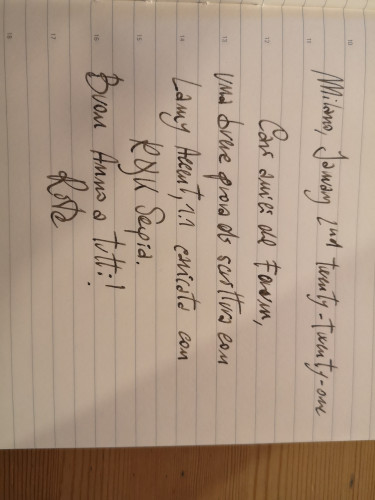 10
Milano, January 2nd twenty-twenty-one
11
Cari amici del Forum,
12
una breve prova di scrittura con
13
Lamy Accent, 1.1 caricata con
14
R&K Sepia.
15
Buon Anno a tutti!
16
17
18